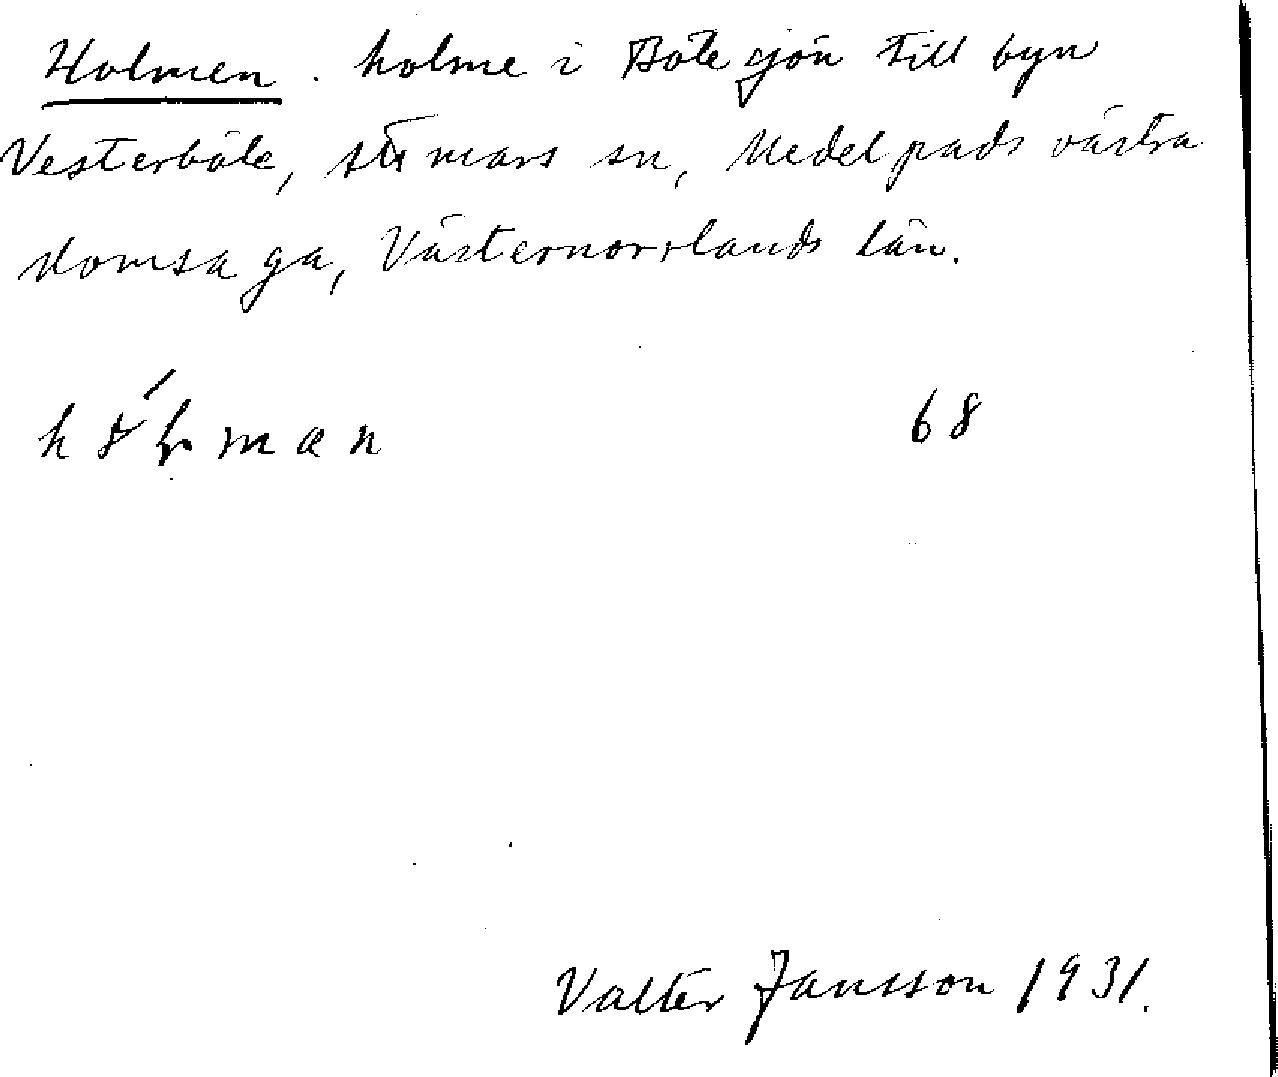 Holmen. holme i Botesjön till byn
Vesterbole, Attmars sn, Medelpads västra
domsaga, Västernorrlands län.
man 68
Valter Jansson 1931.